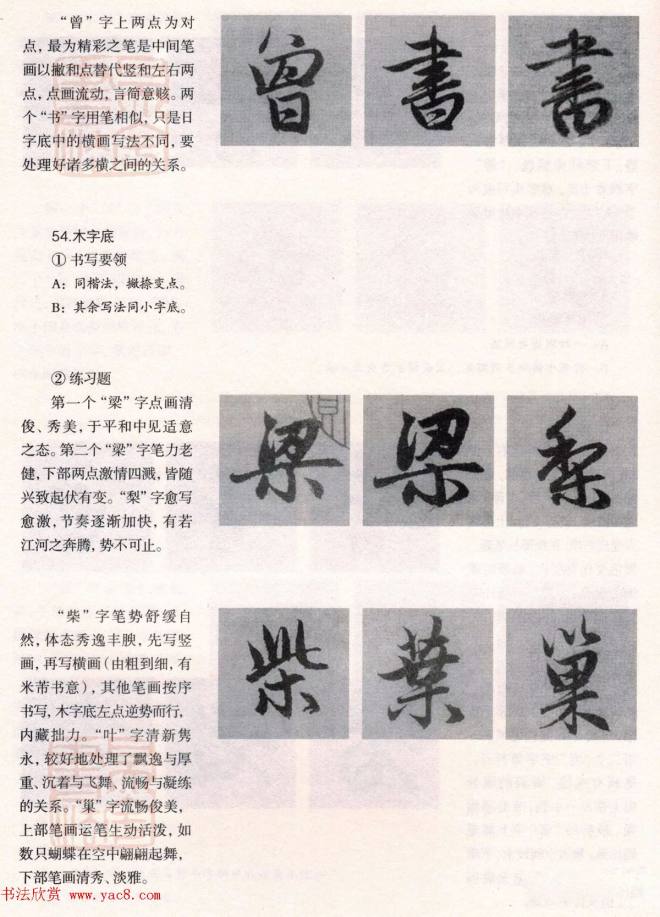 “曾”字上两点为对
点，最为精彩之笔是中间笔
画以撇和点替代竖和左右两
点，点画流动，言简意赅。两
个“书”字用笔相似，只是日
字底中的横画写法不同，要
处理好诸多横之间的关系。
曾 書 書
54.木字底
① 书写要领
A：同楷法，撇捺变点。
B：其余写法同小字底。
② 练习题
第一个“梁”字点画清
俊、秀美，于平和中见适意
之态。第二个“梁”字笔力老
健，下部两点激情四溅，皆随
兴致起伏有变。“梨”字愈写
愈激，节奏逐渐加快，有若
江河之奔腾，势不可止。
梁 梁 梨
“柴”字笔势舒缓自
然，体态秀逸丰腴，先写竖
画，再写横画（由粗到细，有
米芾书意），其他笔画按序
书写，木字底左点逆势而行，
内藏拙力。“叶”字清新隽
永，较好地处理了飘逸与厚
重、沉着与飞舞、流畅与凝练
的关系。“巢”字流畅俊美，
上部笔画运笔生动活泼，如
数只蝴蝶在空中翩翩起舞，
下部笔画清秀、淡雅。
柴 葉 巢
书法欣赏 www.yac8.com